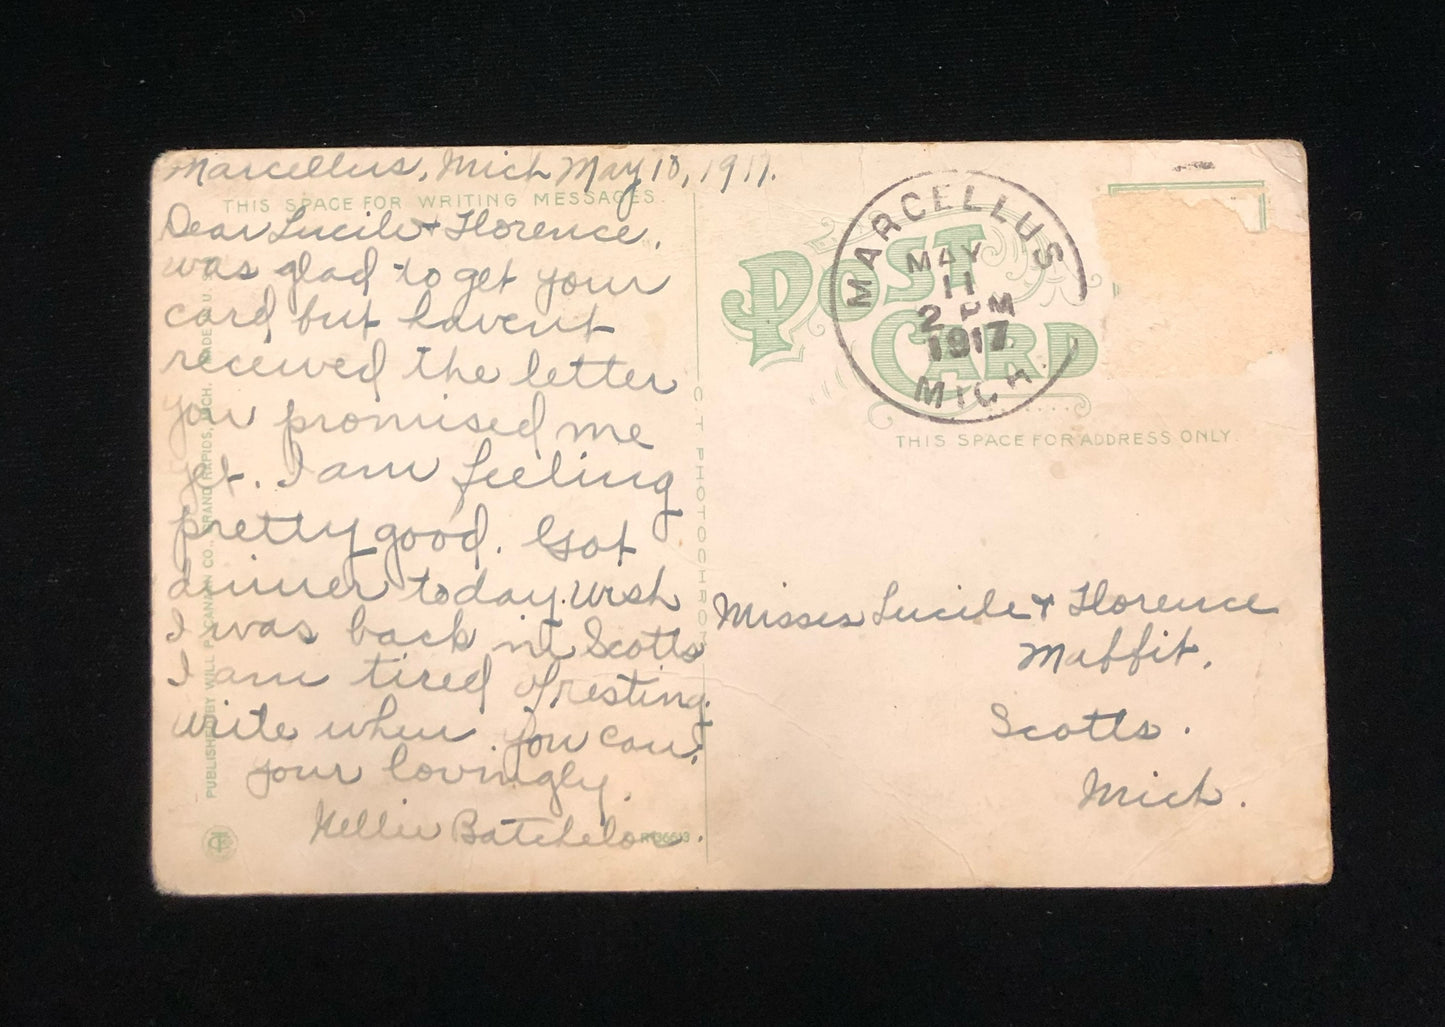 Marcellus, Mich May 10, 1917.
THIS SPACE FOR WRITING MESSAGES.
Dear Lucile & Florence,
was glad to get your
card but havent
received the letter
you promised me
yet. I am feeling
pretty good. Got
dinner today. Wish
I was back in Scotts
I am tired of resting.
write when you can,
your lovingly.
Nellie Batchelor.
PUBLISHED BY WILL P. CANAAN CO., GRAND RAPIDS, MICH. MADE U. S.
C. T. PHOTOCHROM
POST
CARD
MARCELLUS
MAY
11
2 PM
1917
MICH.
THIS SPACE FOR ADDRESS ONLY.
Misses Lucile & Florence
Maffit.
Scotts.
Mich.